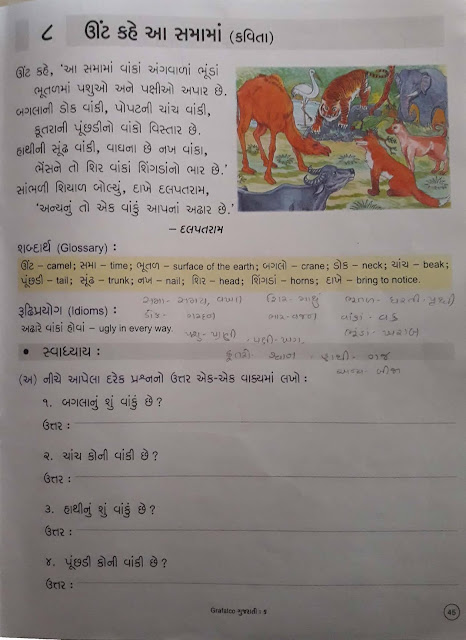 ૮ ઊંટ કહે આ સમામાં (કવિતા)
ઊંટ કહે, ‘આ સમામાં વાંકાં અંગવાળાં ભૂંડાં
ભૂતળમાં પશુઓ અને પક્ષીઓ અપાર છે.
બગલાની ડોક વાંકી, પોપટની ચાંચ વાંકી,
કૂતરાની પૂંછડીનો વાંકો વિસ્તાર છે.
હાથીની સૂંઢ વાંકી, વાઘના છે નખ વાંકા,
ભેંસને તો શિર વાંકાં શિંગડાંનો ભાર છે.’
સાંભળી શિયાળ બોલ્યું, દાખે દલપતરામ,
‘અન્યનું તો એક વાંકું આપનાં અઢાર છે.’
– દલપતરામ
શબ્દાર્થ (Glossary) :
ઊંટ – camel; સમા – time; ભૂતળ – surface of the earth; બગલો – crane; ડોક – neck; ચાંચ – beak;
પૂંછડી – tail; સૂંઢ – trunk; નખ – nail; શિર – head; શિંગડાં – horns; દાખે – bring to notice.
સમા - સમય, શિર - માથું ભૂતળ - ધરતી - પૃથ્વી
રૂઢિપ્રયોગ (Idioms) : ડોક - ગરદન ભાર - વજન વાંકાં - વક્ર
અઢારે વાંકાં હોવાં – ugly in every way. પશુ - પ્રાણી પક્ષી - ખગ ભૂંડાં - ખરાબ
• સ્વાધ્યાય : કૂતરો - શ્વાન હાથી - ગજ
અન્ય - બીજા
(અ) નીચે આપેલા દરેક પ્રશ્નનો ઉત્તર એક-એક વાક્યમાં લખો :
૧. બગલાનું શું વાંકું છે ?
ઉત્તર :
૨. ચાંચ કોની વાંકી છે ?
ઉત્તર :
૩. હાથીનું શું વાંકું છે ?
ઉત્તર :
૪. પૂંછડી કોની વાંકી છે ?
ઉત્તર :
Grafalco ગુજરાતી : ૬
45